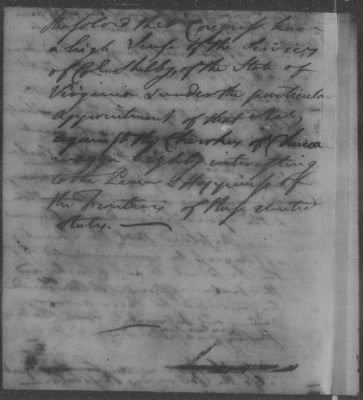 Resolved that Congress have
a high sense of the Services
of Col. Shelby, of the State of
Virginia under the particular
appointment of that State,
against the Cherokees of Chicca
maga highly interesting
to the Peace & Happiness of
the Frontiers of these United
States. —